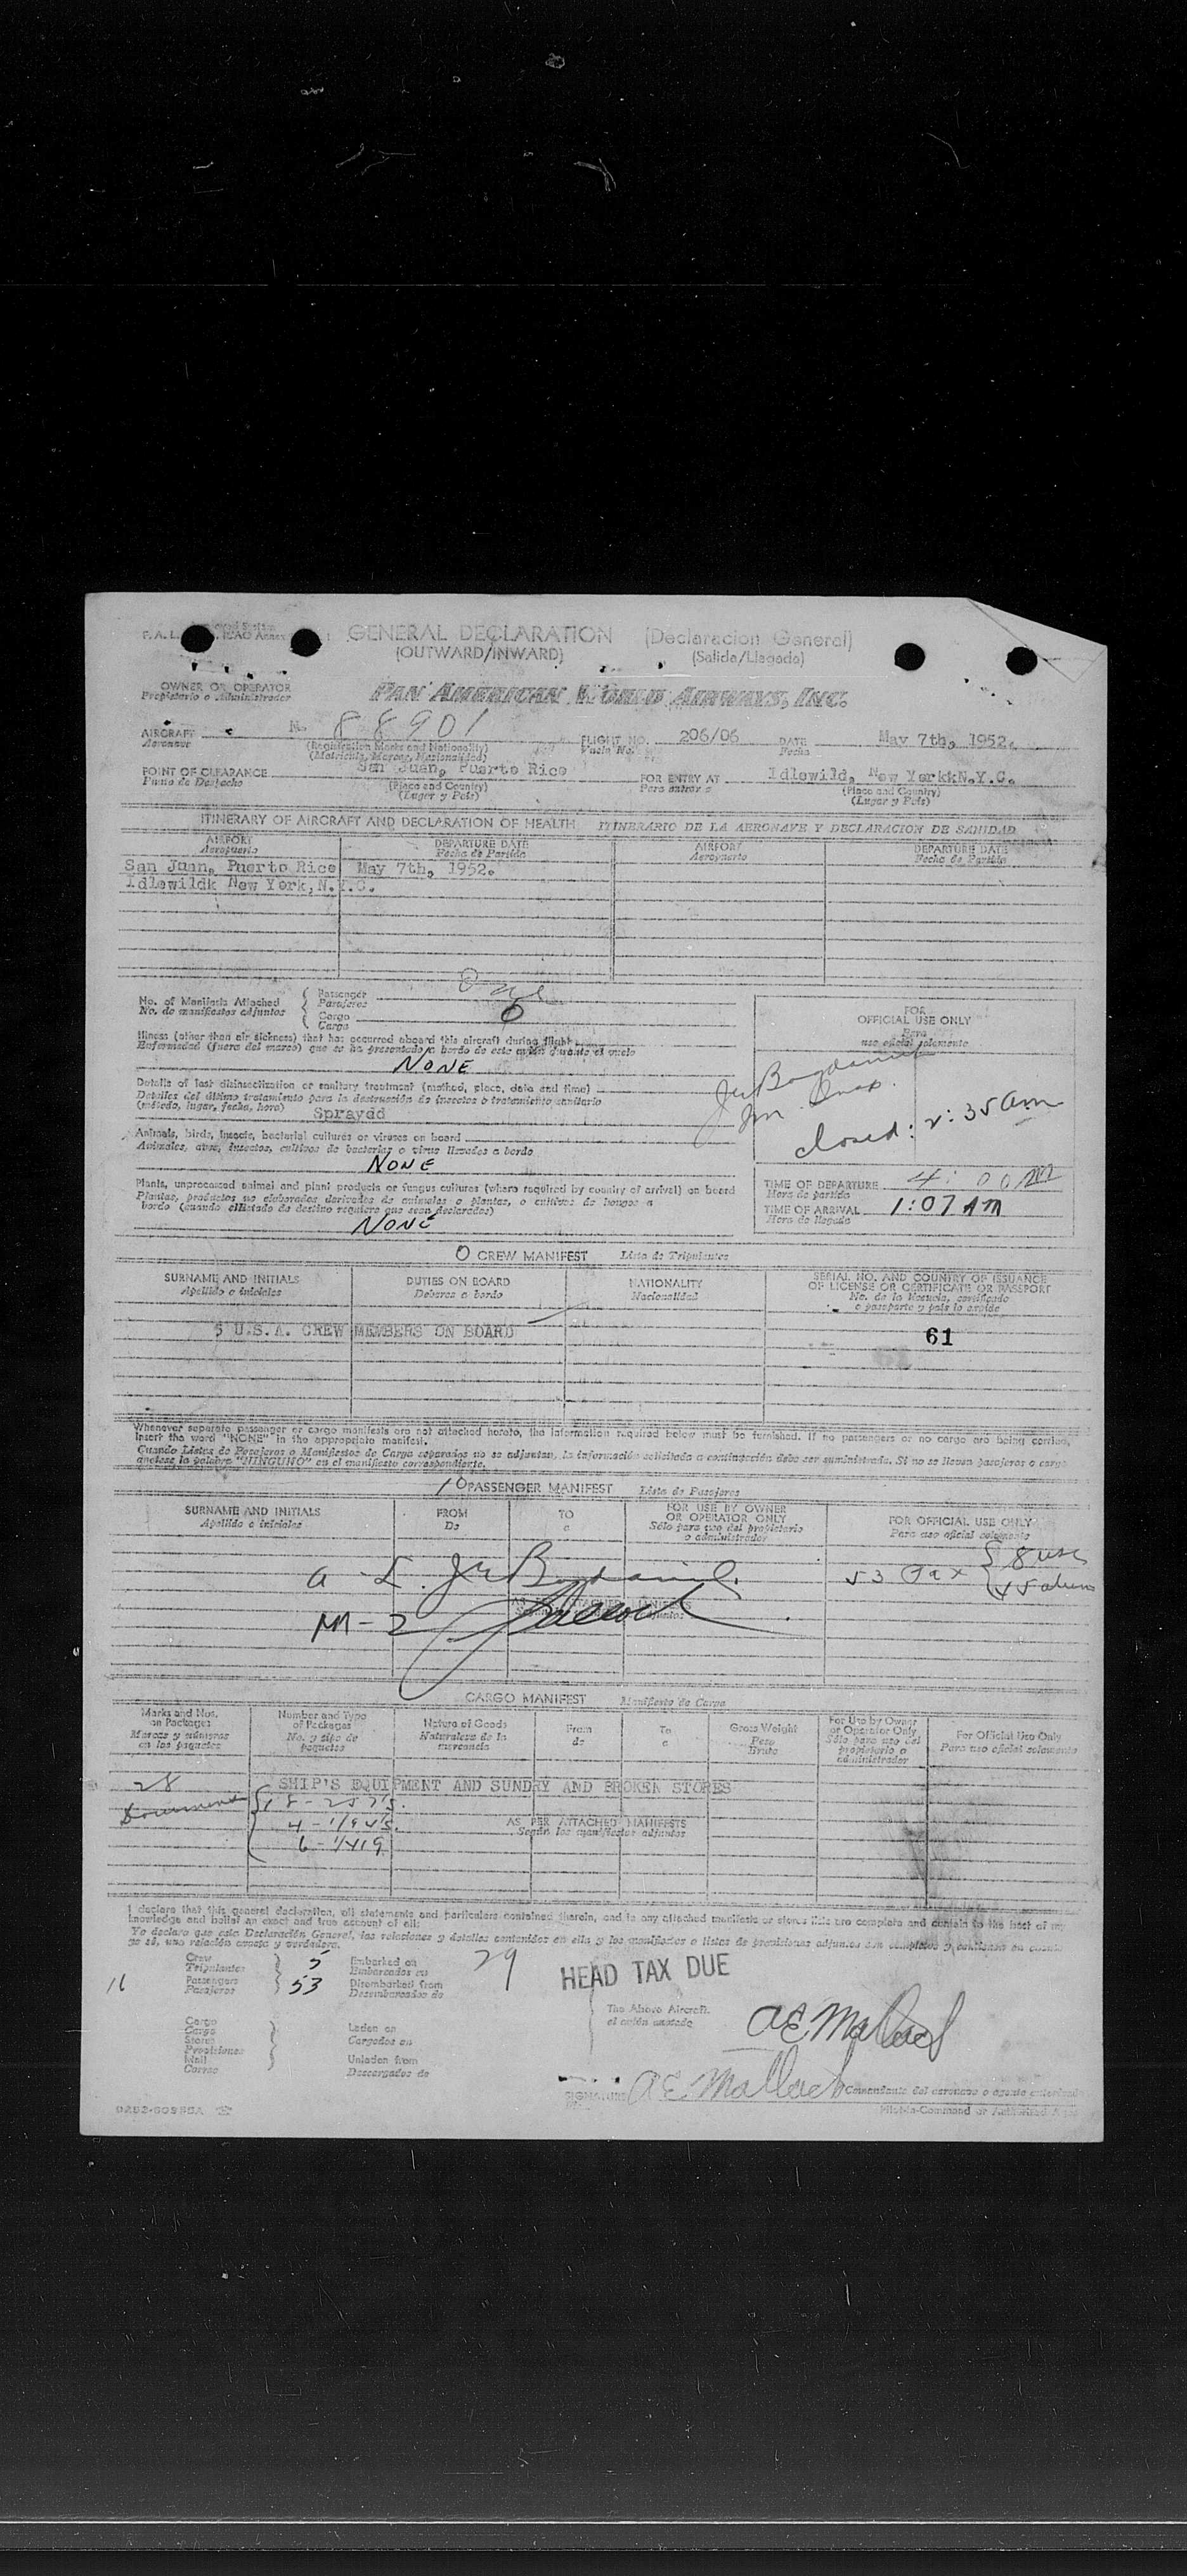 GENERAL DECLARATION (Declaracion General)
(OUTWARD/INWARD) (Salida/Llegada)
OWNER OR OPERATOR
Propietario o Administrador
PAN AMERICAN WORLD AIRWAYS, INC.
AIRCRAFT N. 88901 FLIGHT NO. 206/06 DATE May 7th, 1952.
Aeronave (Registration Marks and Nationality) Vuelo No. Fecha
(Matricula, Marcas, Nacionalidad)
POINT OF CLEARANCE San Juan, Puerto Rico FOR ENTRY AT Idlewild, New YorkkN.Y.C.
Punto de Despacho (Place and Country) Para entrar a (Place and Country)
(Lugar y Pais) (Lugar y Pais)
ITINERARY OF AIRCRAFT AND DECLARATION OF HEALTH ITINERARIO DE LA AERONAVE Y DECLARACION DE SANIDAD
AIRPORT DEPARTURE DATE AIRPORT DEPARTURE DATE
Aeropuerto Fecha de Partida Aeropuerto Fecha de Partida
San Juan, Puerto Rico May 7th, 1952.
Idlewildk New York,N.Y.C.
No. of Manifests Attached Passenger One
No. de manifiestos adjuntos Pasajeros
Cargo 0
Carga
Illness (other than air sickness) that has occurred aboard this aircraft during flight
Enfermedad (fuera del mareo) que se ha presentado a bordo de este avión durante el vuelo
NONE
Details of last disinsectization or sanitary treatment (method, place, date and time)
Detalles del último tratamiento para la destrucción de insectos o tratamiento sanitario
(método, lugar, fecha, hora) Spraydd
Animals, birds, insects, bacterial cultures or viruses on board
Animales, aves, insectos, cultivos de bacterias o virus llevados a bordo
NONE
Plants, unprocessed animal and plant products or fungus cultures (where required by country of arrival) on board
Plantas, productos no elaborados derivados de animales o plantas, o cultivos de hongos a
bordo (cuando el Estado de destino requiere que sean declarados)
NONE
FOR
OFFICIAL USE ONLY
Para
uso oficial solamente
closed: 2:35 am
TIME OF DEPARTURE 4:00 PM
Hora de partida
TIME OF ARRIVAL 1:07 AM
Hora de llegada
0 CREW MANIFEST Lista de Tripulantes
SURNAME AND INITIALS DUTIES ON BOARD NATIONALITY SERIAL NO. AND COUNTRY OF ISSUANCE
Apellido e iniciales Deberes a bordo Nacionalidad OF LICENSE OR CERTIFICATE OR PASSPORT
No. de la licencia, certificado
o pasaporte y pais lo expide
5 U.S.A. CREW MEMBERS ON BOARD 61
Whenever separate passenger or cargo manifests are not attached hereto, the information required below must be furnished. If no passengers or no cargo are being carried,
insert the word "NONE" in the appropriate manifest.
Cuando Listas de Pasajeros o Manifiestos de Carga separados no se adjuntan, la información solicitada a continuación debe ser suministrada. Si no se llevan pasajeros o carga
anótese la palabra "NINGUNO" en el manifiesto correspondiente.
10 PASSENGER MANIFEST Lista de Pasajeros
SURNAME AND INITIALS FROM TO FOR USE BY OWNER FOR OFFICIAL USE ONLY
Apellido e iniciales De a OR OPERATOR ONLY Para uso oficial solamente
Sólo para uso del propietario
o administrador
53 Pax 8 USC
45 aliens
M-2
CARGO MANIFEST Manifiesto de Carga
Marks and Nos. Number and Type Nature of Goods From To Gross Weight For Use by Owner For Official Use Only
on Packages of Packages Naturaleza de la de a Peso or Operator Only Para uso oficial solamente
Marcas y números No. y tipo de mercancia Bruto Sólo para uso del
en los paquetes paquetes propietario o
administrador
28 SHIP'S EQUIPMENT AND SUNDRY AND BROKEN STORES
Documents 18-257's.
4-1/94's. AS PER ATTACHED MANIFESTS
6-1/419 Según los manifiestos adjuntos
I declare that this general declaration, all statements and particulars contained therein, and in any attached manifests or stores lists are complete and contain to the best of my
knowledge and belief an exact and true account of all:
Yo declaro que esta Declaración General, las relaciones y detalles contenidos en ella y los manifiestos o listas de provisiones adjuntos son completos y contienen en cuanto
yo sé, una relación exacta y verdadera.
Crew 5 Embarked on 29
Tripulantes Embarcados en
16 Passengers 53 Disembarked from
Pasajeros Desembarcados de
HEAD TAX DUE
Cargo
Carga Laden on The Above Aircraft.
Stores Cargados en el avión anotado
Provisiones
Mail Unladen from
Correo Descargados de
AE Mallach
SIGNATURE AE Mallach Comandante del aeronave o agente autorizado
Pilot-in-Command or Authorized Agent